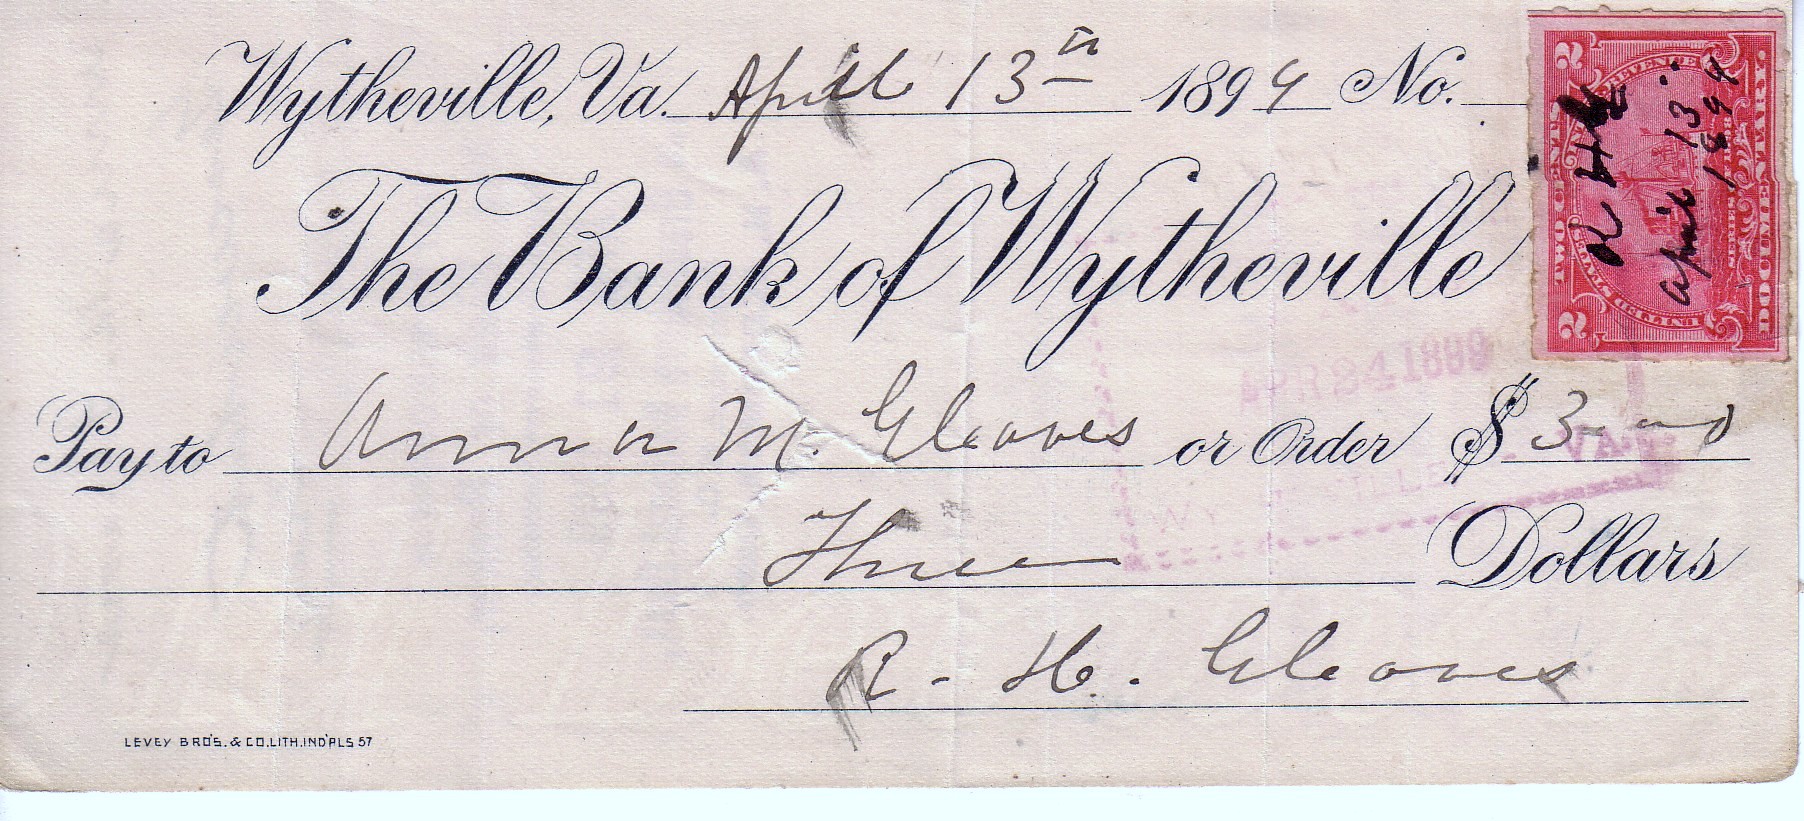 Wytheville, Va. April 13th 1899 No.
The Bank of Wytheville
Pay to Anna M. Gleaves or Order $ 3.00
Three Dollars
R. H. Gleaves
LEVEY BRO'S. & CO. LITH. IND'PLS 57
TWO CENTS
UNITED STATES
SERIES OF 1898
DOCUMENTARY.
2 2
R H G
April 13. 1899
APR 24 1899
VA.